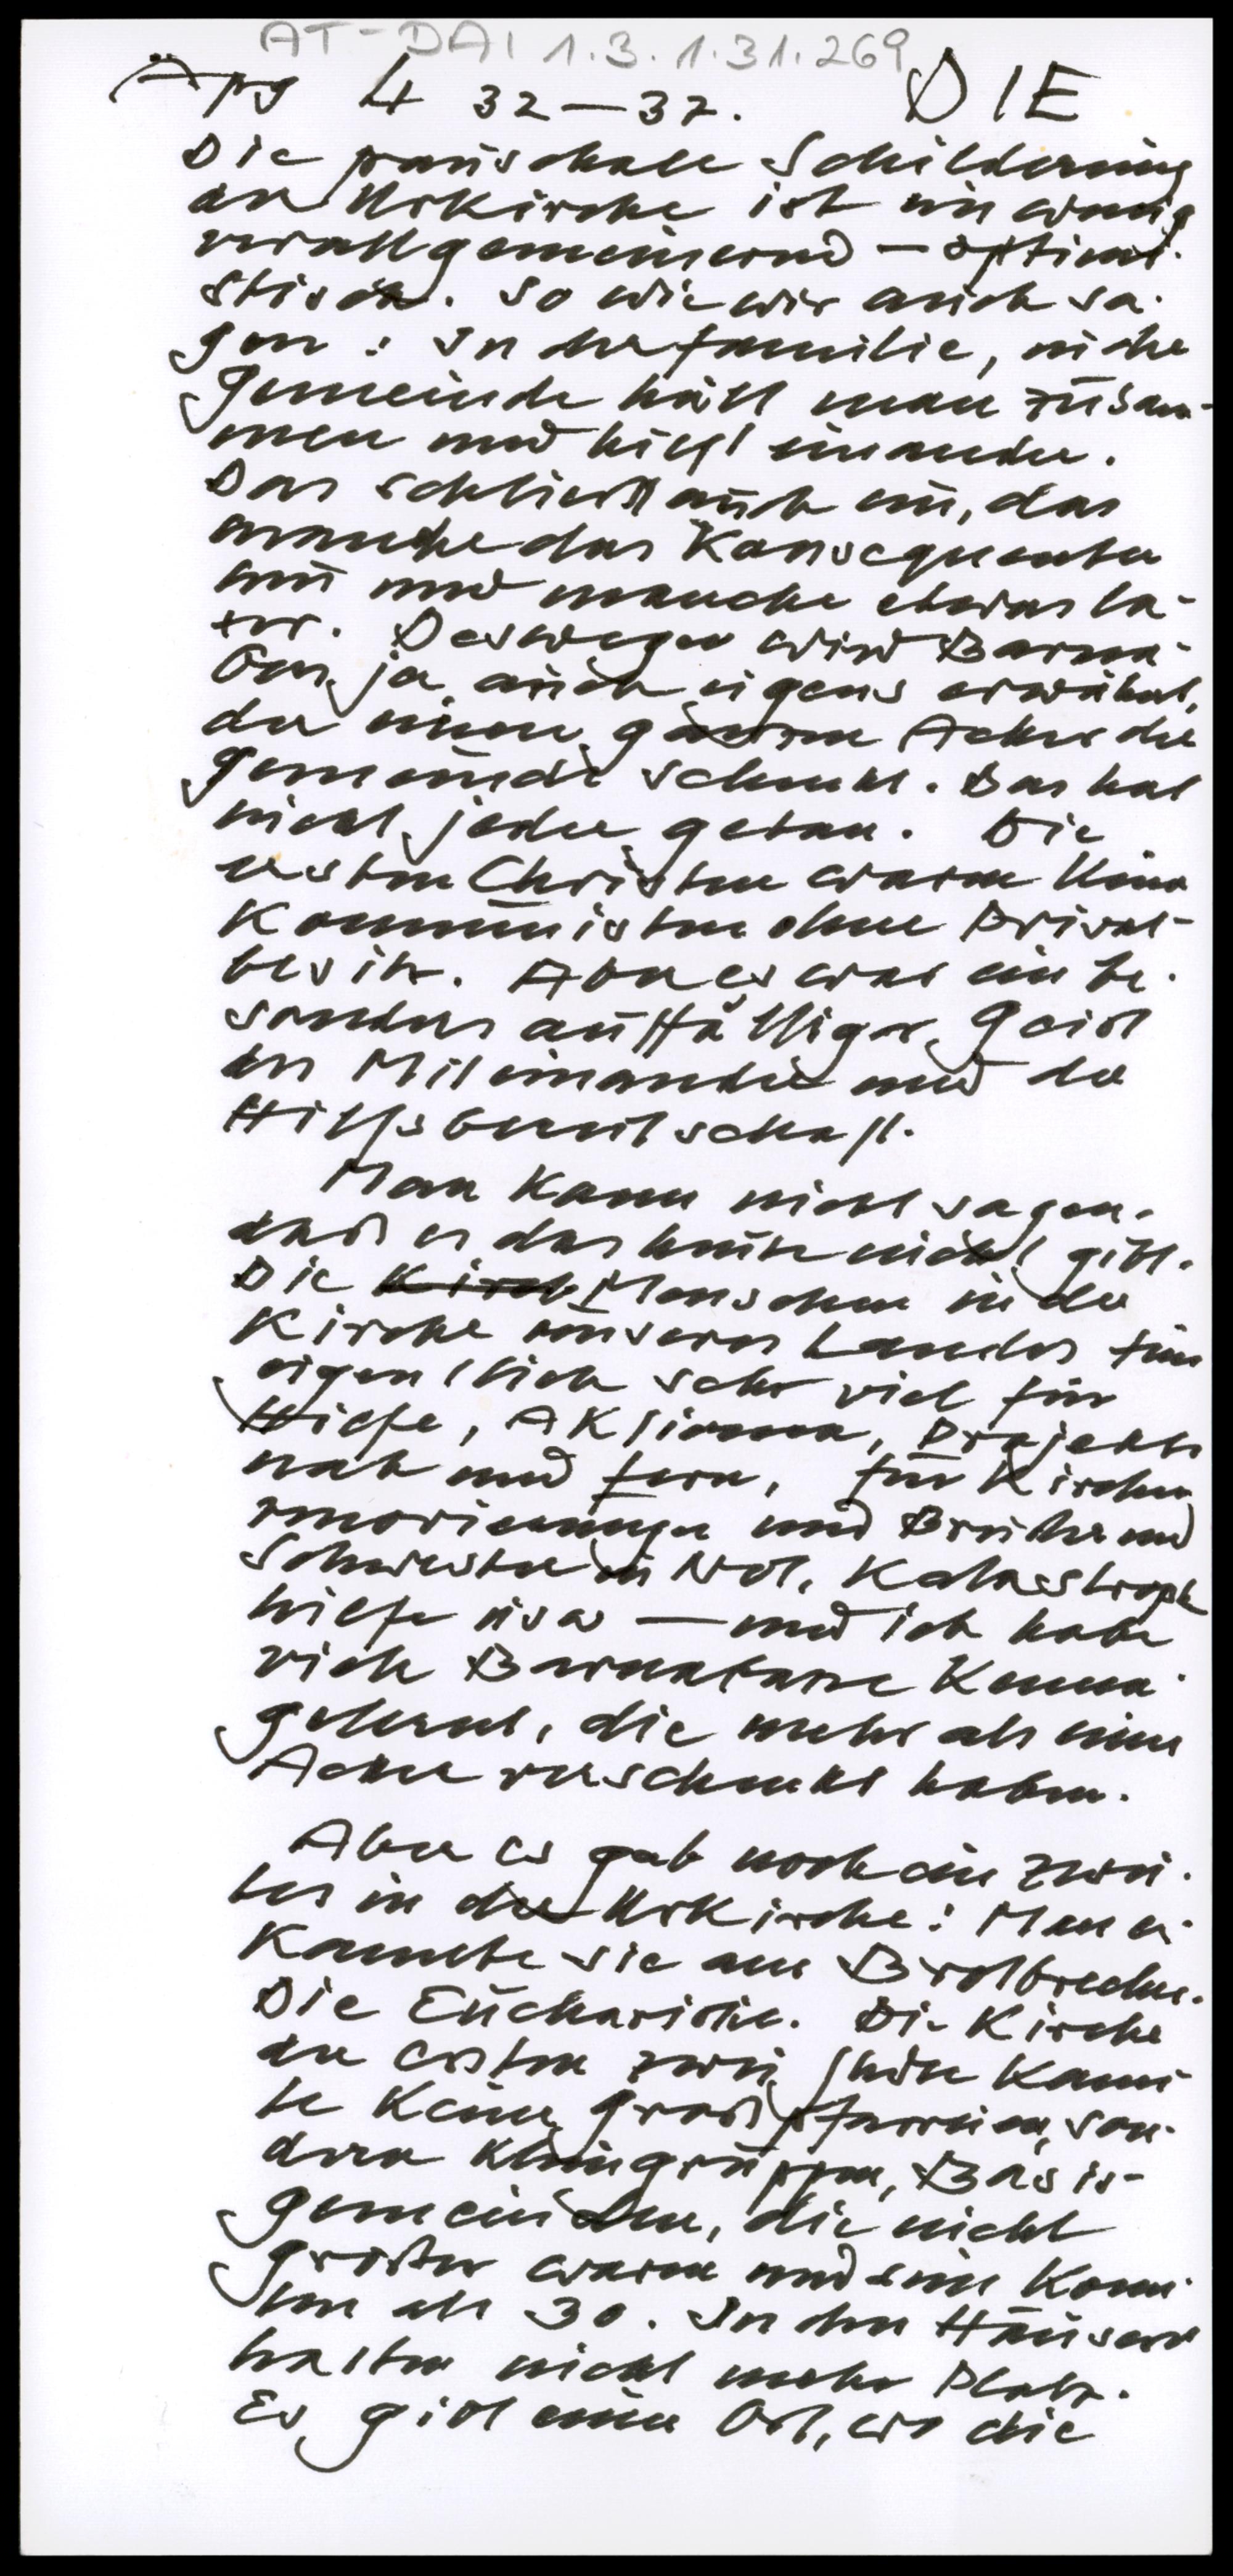 AT-DAI 1.3.1.31.269
Apg 4 32–37. DIE
Die pauschale Schilderung
der Urkirche ist ein wenig
verallgemeinernd – optimi-
stisch. So wie wir auch sa-
gen: In der Familie, in der
Gemeinde hält man zusam-
men und hilft einander.
Das schließt auch ein, das
manche das Konsequenter
tun und manche etwas la-
xer. Deswegen wird Barna-
bas ja auch eigens erwähnt,
der einen ganzen Acker der
Gemeinde schenkt. Das hat
nicht jeder getan. Die
ersten Christen waren keine
Kommunisten ohne Privat-
besitz. Aber es war ein be-
sonders auffälliger Geist
des Miteinander und der
Hilfsbereitschaft.
Man kann nicht sagen,
daß es das heute nicht gibt.
Die Kirch Menschen in der
Kirche unseres Landes tun
eigentlich sehr viel für
Hilfe, Aktionen, Projekte
nah und fern, für Kirchen
renovierungen und Brüder und
Schwestern in Not, Katastroph
hilfe usw – und ich habe
viele Barnabasse kennen
gelernt, die mehr als einen
Acker verschenkt haben.
Aber es gab noch ein zwei-
tes in der Urkirche: Man er-
kannte sie am Brotbrechen.
Die Eucharistie. Die Kirche
der ersten zwei Jhdte kann-
te keine Großpfarreien, son-
dern Kleingruppen, Basis-
gemeinden, die nicht
größer waren und sein konn-
ten als 30. In den Häusern
hatten nicht mehr Platz.
Es gibt einen Ort, wo die